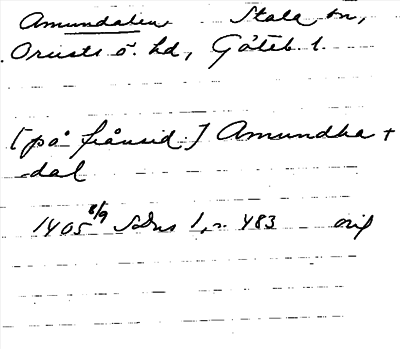 Amundalen Stala sn,
Orusts ö. hd, Göteb. l.
[på frånsid.] Amundha +
dal
1405 8/9 SDns 1, n. 483 orig